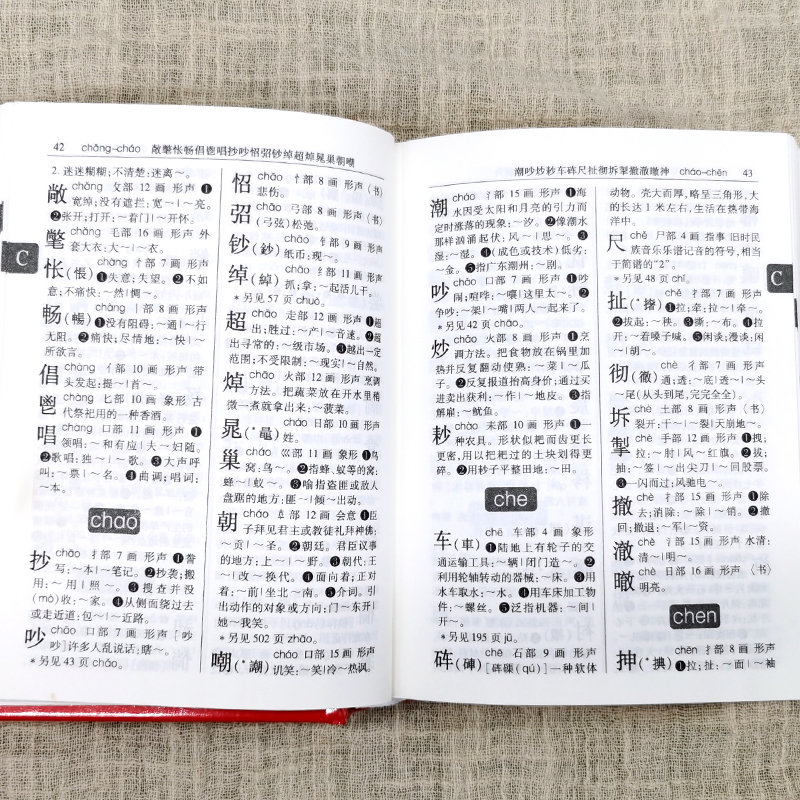 42 chǎng-cháo 敞氅怅畅倡鬯唱抄吵怊弨钞绰超焯晁巢朝嘲
2. 迷迷糊糊;不清楚;迷离~。
敞 chǎng 攵部 12 画 形声 ❶
宽绰;没有遮拦:宽~|~亮。
❷张开;打开:~着门|~开怀。
氅 chǎng 毛部 16 画 形声 外
套大衣:大~|~衣。
怅(悵) chàng 忄部 7 画 形声
❶失意;失望。❷不如
意;不痛快:~然|惆~。
畅(暢) chàng 丨部 8 画 形声
❶没有阻碍:~通|~行
无阻。❷痛快;尽情地:~快|~
所欲言。
倡 chàng 亻部 10 画 形声 带
头发起:提~|首~。
鬯 chàng 匕部 10 画 象形 古
代祭祀用的一种香酒。
唱 chàng 口部 11 画 形声 ❶
领唱:~和有应|夫~妇随。
❷歌唱:独~|~歌。❸大声呼
叫:~票|~名。❹曲调;唱词:
~本。
C
chao
抄 chāo 扌部 7 画 形声 ❶誊
写:~本|~笔记。❷抄袭;搬
用:~用|照~。❸搜查并没
(mò)收:~家。❹从侧面绕过去
或走近道:包~|~近路。
吵 chāo 口部 7 画 形声 [吵
吵]许多人乱说话:瞎~。
*另见 43 页 chǎo。
怊 chāo 忄部 8 画 形声〈书〉
悲伤。
弨 chāo 弓部 8 画 形声〈书〉
(弓弦)松弛。
钞(鈔) chāo 钅部 9 画 形声
纸币:现~。
绰(綽) chāo 纟部 11 画 形声
抓;拿:~起活儿干。
*另见 57 页 chuò。
超 chāo 走部 12 画 形声 ❶超
出;胜过:~产|~音速。❷超
出寻常的:~级市场。❸越出一定
范围;不受限制:~现实|~自然。
焯 chāo 火部 12 画 形声 烹调
方法。把蔬菜放在开水里稍
微一煮就拿出来:~菠菜。
晁(*鼂) cháo 日部 10 画 形声
姓。
巢 cháo 巛部 11 画 象形 ❶鸟
窝:鸟~。❷指蜂、蚁等的窝:
蜂~|蚁~。❸喻指盗匪或敌人
盘踞的地方:匪~|倾~出动。
朝 cháo 𠦝部 12 画 会意 ❶臣
子拜见君主或教徒礼拜神佛:
~贡|~圣。❷朝廷。君臣议事
的地方:上~|~野。❸朝代:王
~|改~换代。❹面向着;正对
着:~前|坐北~南。❺介词。引
出动作的对象或方向:门~东开|
她~我笑。
*另见 502 页 zhāo。
嘲(*謿) cháo 口部 15 画 形声
讥笑:~笑|冷~热讽。
潮吵炒耖车砗尺扯彻坼掣撤澈瞮抻 cháo-chēn 43
潮 cháo 氵部 15 画 形声 ❶海
水因受太阳和月亮的引力而
定时涨落的现象:~汐。❷像潮水
那样汹涌起伏:风~|思~。❸
湿:~湿。❹(成色或技术)低劣:
~金。❺指广东潮州:~剧。
吵 chǎo 口部 7 画 形声 ❶吵
闹;喧哗:~嚷|这里太~。❷
争吵:~架|~嘴|两人~起来了。
*另见 42 页 chāo。
炒 chǎo 火部 8 画 形声 ❶烹
调方法。把食物放在锅里加
热并反复翻动使熟:~菜|~瓜
子。❷反复报道抬高身价;通过买
进卖出获利:~作|~地皮。❸指
解雇:~鱿鱼。
耖 chào 耒部 10 画 形声 ❶一
种农具。形状似耙而齿更长
更密,用以把耙过的土块划得更
碎。❷用耖子平整田地:~田。
che
车(車) chē 车部 4 画 象形
❶陆地上有轮子的交
通运输工具:~辆|闭门造~。❷
利用轮轴转动的器械:~床。❸用
水车取水:~水。❹用车床加工物
件:~螺丝。❺泛指机器:~间|
开~。
*另见 195 页 jū。
砗(硨) chē 石部 9 画 形声
[砗磲(qú)]一种软体
动物。壳大而厚,略呈三角形,大的
长达 1 米左右,生活在热带海
洋中。
尺 chě 尸部 4 画 指事 旧时民
族音乐乐谱记音的符号,相当
于简谱的“2”。
*另见 48 页 chǐ。
扯(*撦) chě 扌部 7 画 形声
❶拉;牵:拉~|牵~。
❷拔起:~秧。❸撕:~布。❹拉
开:~着嗓子喊。❺闲谈;漫谈:闲
~|胡~。
彻(徹) chè 彳部 7 画 形声
通;透:~底|透~|~头
~尾(从头到尾,完完全全)。
坼 chè 土部 8 画 形声〈书〉
裂开:~干~裂|天崩地~。
掣 chè 手部 12 画 形声 ❶拽;
拉:~肘|风~红旗。❷拔;
抽:~签|~出尖刀|~回股票。
❸一闪而过:风驰电~。
撤 chè 扌部 15 画 形声 ❶除
去;消除:~除|~销。❷撤
回;撤退:~军|~资。
澈 chè 氵部 15 画 形声 水清:
清~|明~。
瞮 chè 日部 16 画 形声〈书〉
明亮。
C
chen
抻(*捵) chēn 扌部 8 画 形声
❶拉;扯:~面|~袖